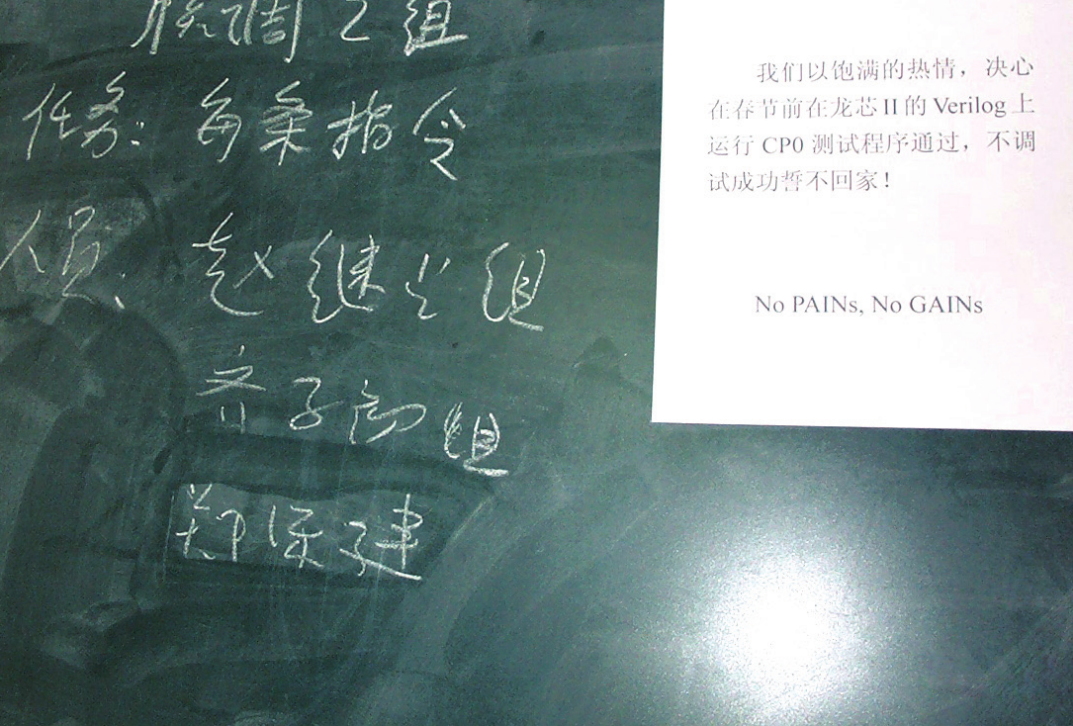 联调2组
任务：每条指令
人员：赵继业组
齐子初组
郑保建
我们以饱满的热情，决心
在春节前在龙芯II的Verilog上
运行 CP0 测试程序通过，不调
试成功誓不回家！
No PAINs, No GAINs